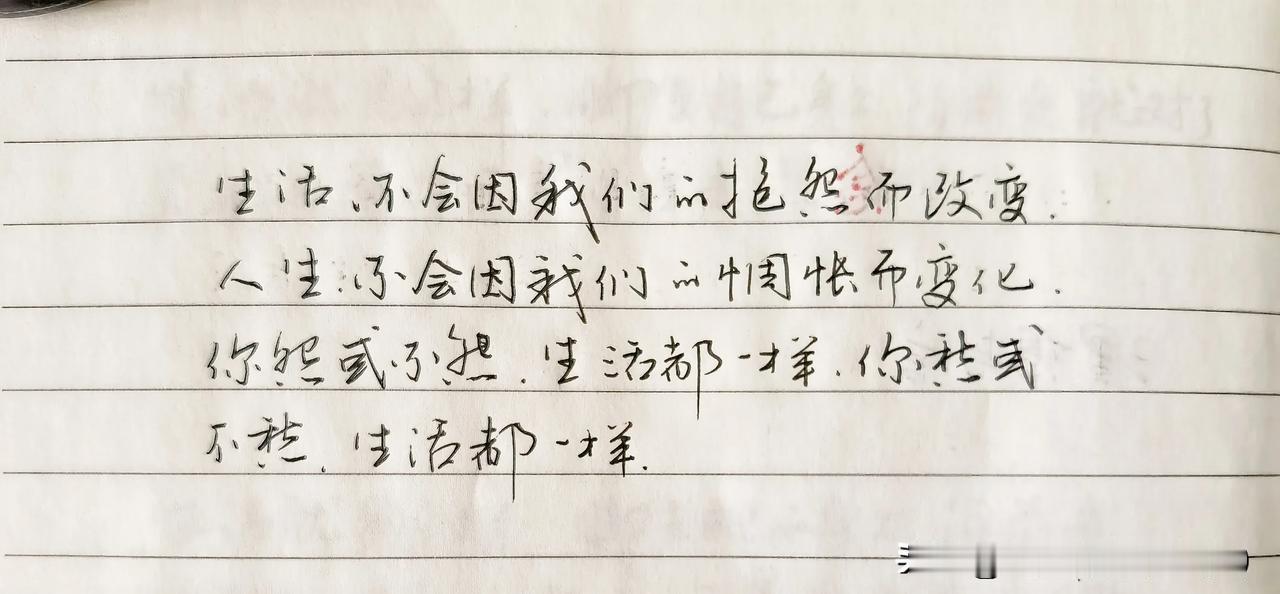 生活、不会因我们的抱怨而改变.
人生.不会因我们的惆怅而变化.
你怨或不怨.生活都一样.你愁或
不愁.生活都一样.